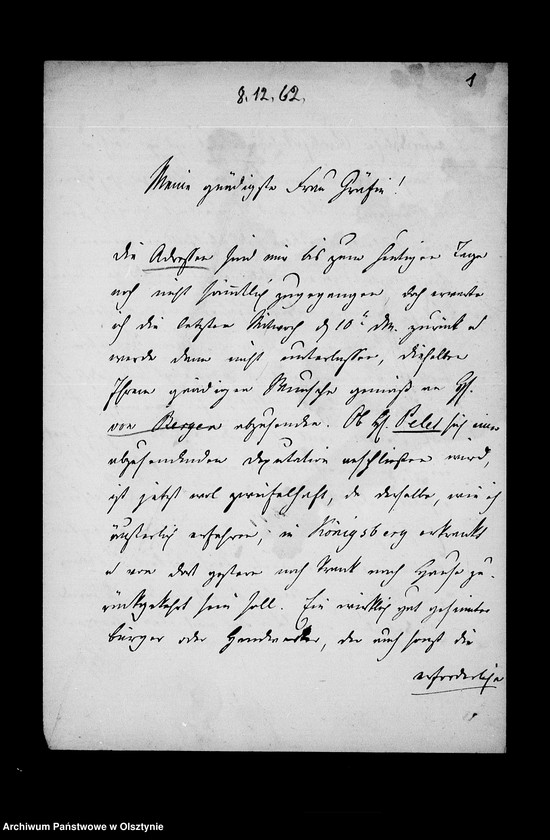 1
8.12.62.
Meine gnädigste Frau Gräfin!
Die Adressen sind mir bis zum heutigen Tage
noch nicht sämtlich zugegangen, doch erwarte
ich die letzten Mittwoch d 10t. dM. zurück u
werde dann nicht unterlassen, dieselben
Ihrem gnädigen Wunsche gemäß an H.
von Bergen abzusenden. Ob H. Pelet sich einer
abzusendenden Deputation anschließen wird,
ist jetzt wol zweifelhaft, da derselbe, wie ich
erfahren, in Königsberg erkrankt
u von dort gestern noch krank nach Hause zu-
rückgekehrt sein soll. Ein wirklich gut gesinnter
Bürger oder Handwerker, der auch sonst die
erforderliche
Archiwum Państwowe w Olsztynie